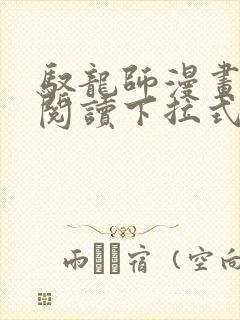 馭龍師漫畫
閱讀下拉式
雨宿 (空向